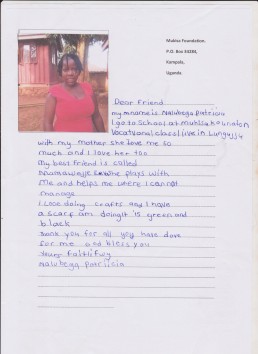 Mukisa Foundation,
P.O. Box 34284,
Kampala,
Uganda
Dear Friend
my name is Nalubega Patricia
I go to School at mukisa foundation
Vocational class I live in Lungujja
with my mother she love me so
much and I love her too
my best friend is called
she plays with
me and helps me where I cannot
manage
I love doing crafts and I have
a scarf am doing it is green and
black
thank you for all you have done
for me and bless you
your faithfwy
nalubega patricia